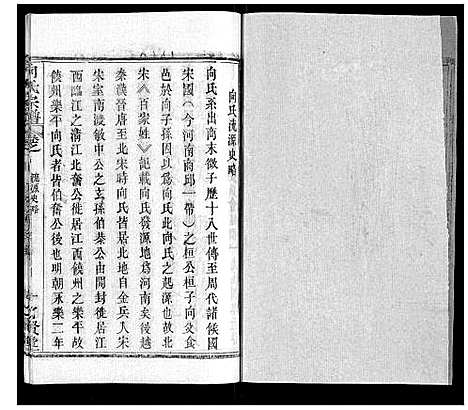 向氏流源史略
向氏系出商末微子歷十八世傳至周代諸侯國
宋國（今河南商邱一帶）之桓公桓子向父食
邑於向子孫因以爲氏此向氏之起源也故北
宋《百家姓》記載向氏發源地爲河南矣後越
秦漢晉唐至北宋時向氏皆居北地自金兵入宋
宋室南渡敏中公之玄孫伯奮公封侯後徙居江
西臨江之清江北奮公徙居江西饒州之樂平故
饒州樂平向氏者皆伯奮公後也明朝永樂二年
向氏宗譜
流源史略